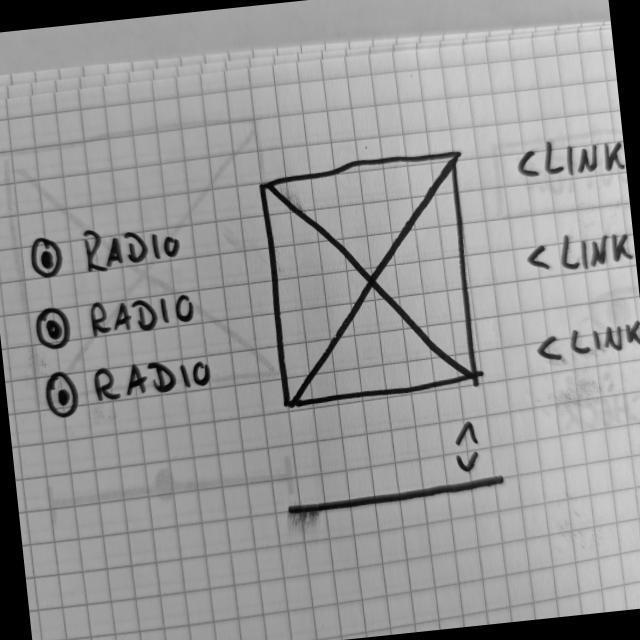 RADIO
RADIO
RADIO
<LINK
<LINK
<LINK